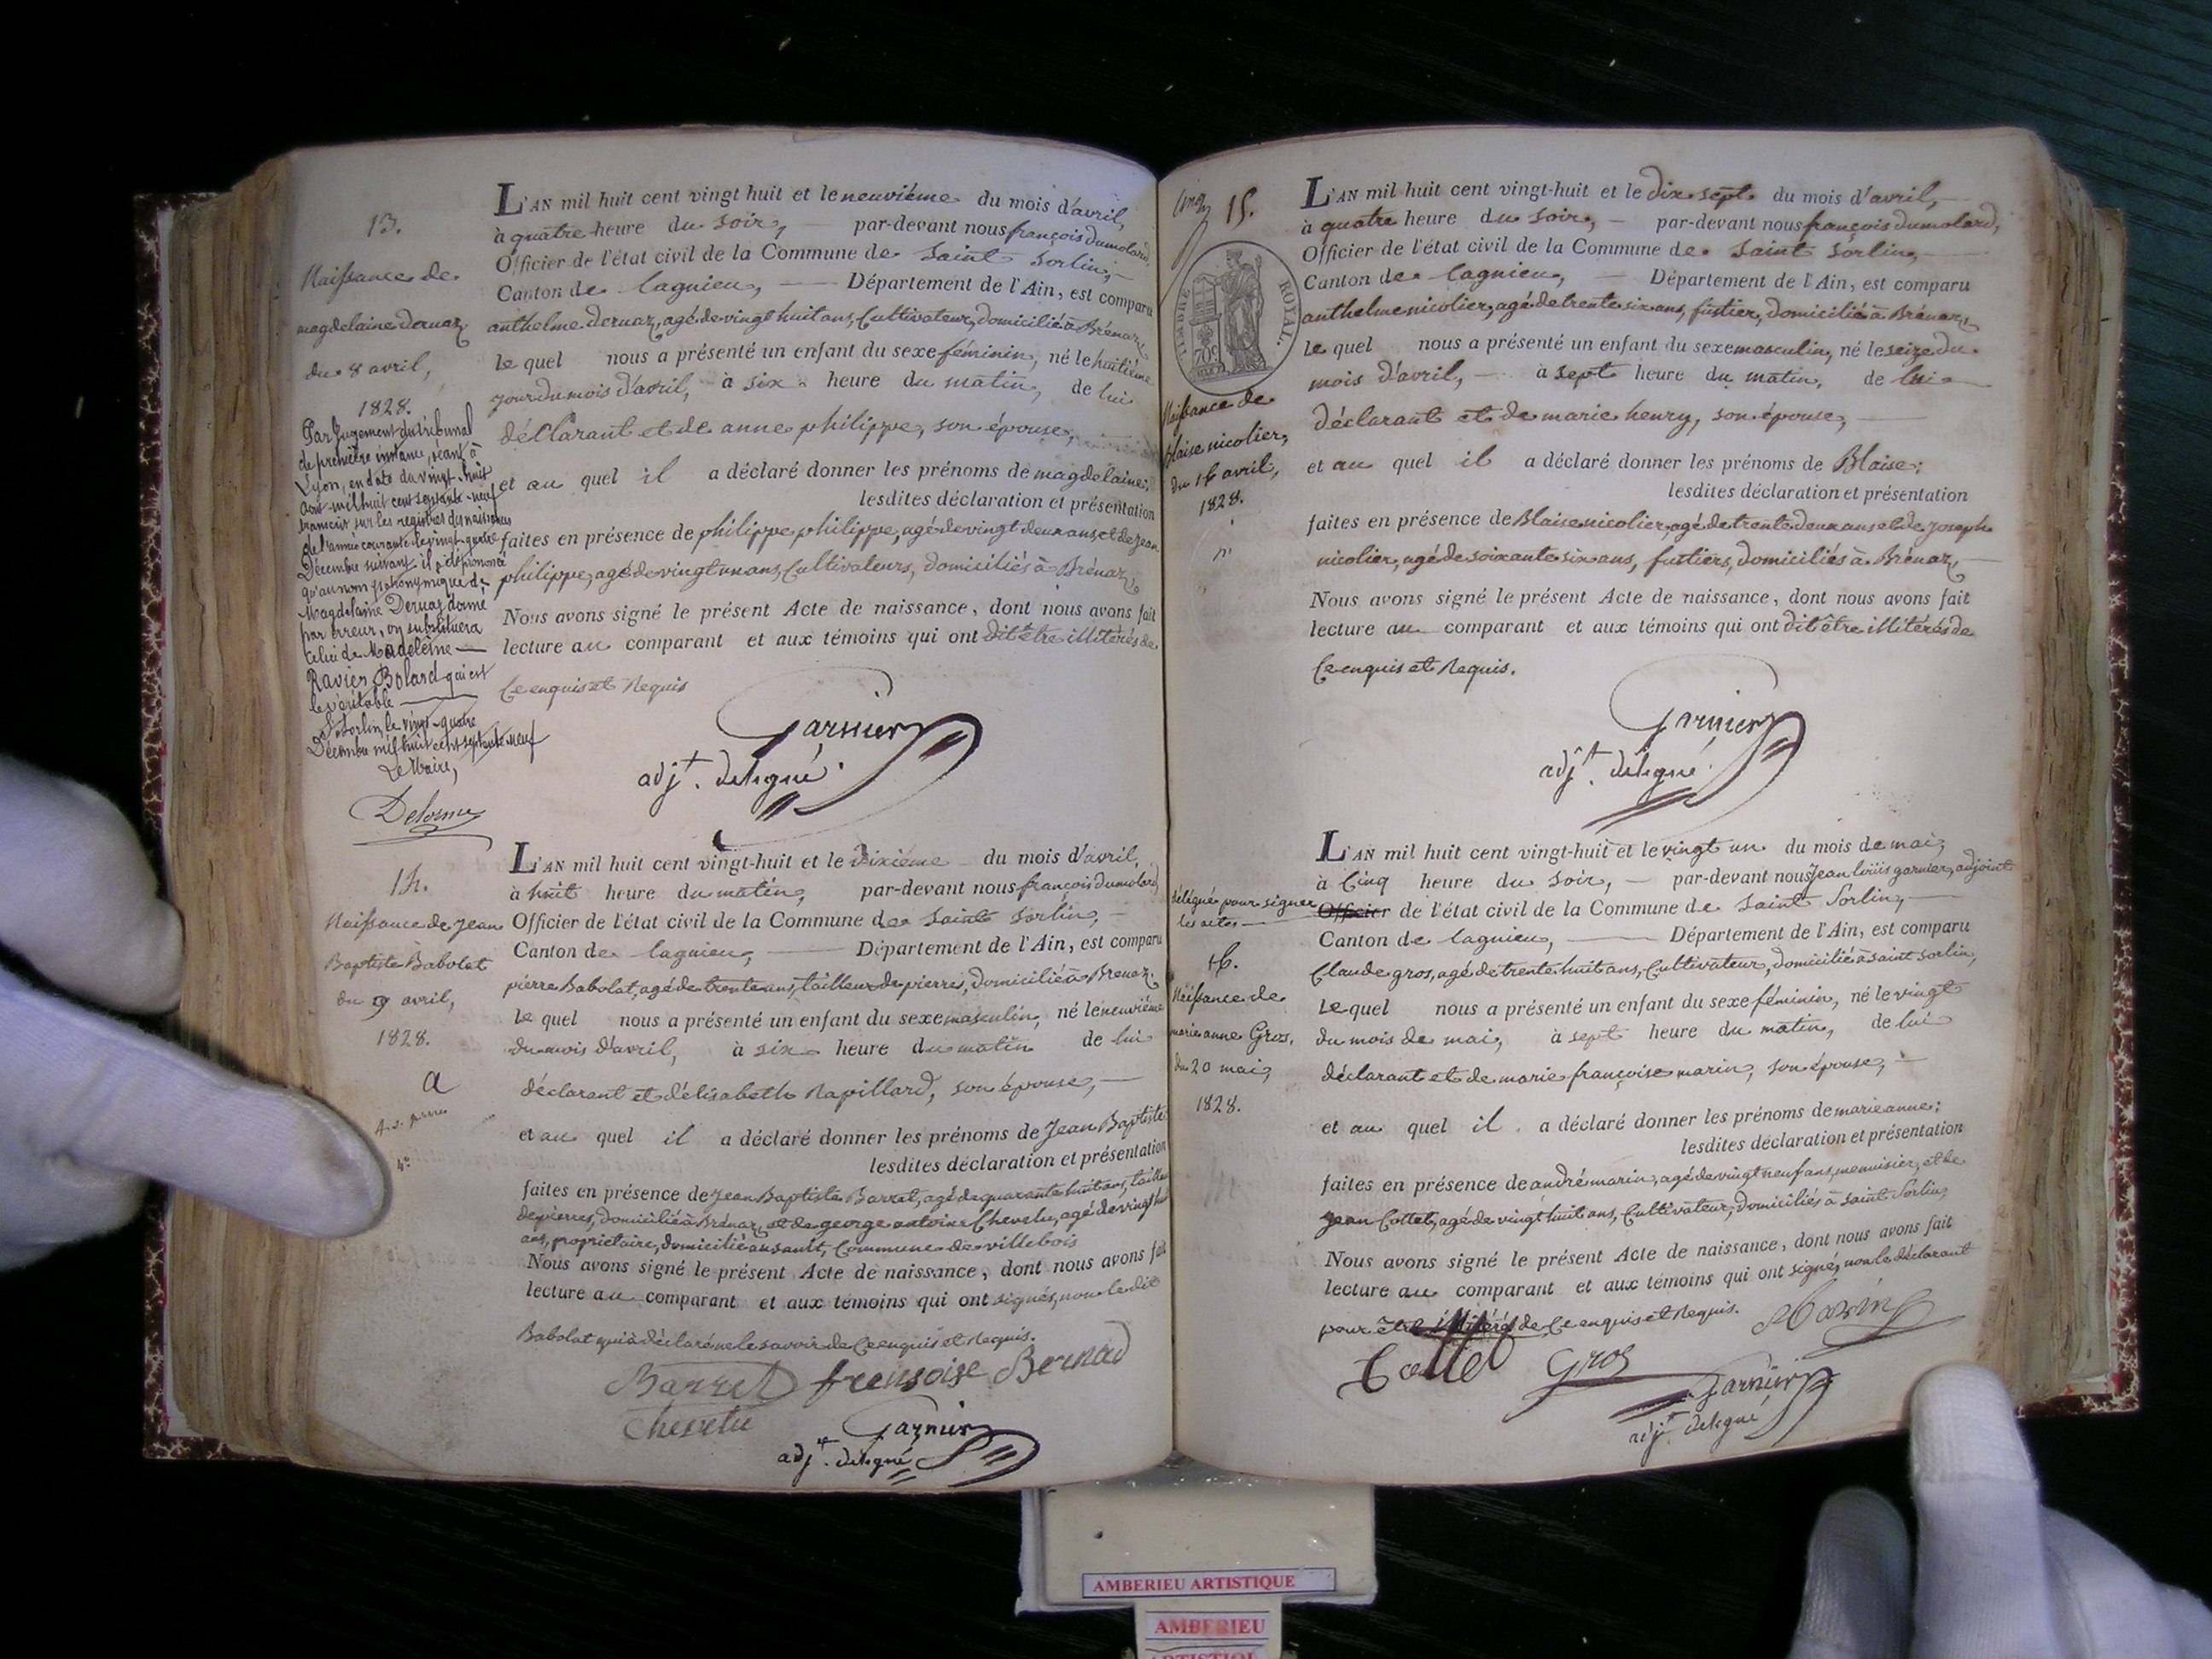 13.
Naissance de
magdelaine Dernaz
du 8 avril,
1828.
Par Jugement du tribunal
de première instance, séant à
Lyon, en date du vingt-huit
Août mil huit cent soixante-neuf
transcrit sur les registres des naissances
de l'année courante le vingt-quatre
Décembre suivant, il a été prononcé
qu'au nom patronymique de
Magdelaine Dernaz donné
par erreur, on substituera
celui de Madeleine —
Ravier Bolard qui est
le véritable —
St Sorlin, le vingt-quatre
Décembre mil huit cent septante neuf
Le Maire,
Delorme
L'AN mil huit cent vingt huit et le neuviéme du mois d'avril,
à quatre heure du soir, — par-devant nous françois dumolard,
Officier de l'état civil de la Commune de Saint Sorlin, —
Canton de lagnieu, — Département de l'Ain, est comparu
anthelme Dernaz, agé de vingt huit ans, Cultivateur, domicilié à Brénaz,
le quel nous a présenté un enfant du sexe féminin, né le huitiéme
jour du mois d'avril, à six heure du matin, de lui
déclarant et de anne philippe, son épouse,
et au quel il a déclaré donner les prénoms de magdelaine;
lesdites déclaration et présentation
faites en présence de philippe philippe, agé de vingt deux ans et de jean
philippe, agé de vingt un ans, Cultivateurs, domiciliés à Brénaz,
Nous avons signé le présent Acte de naissance, dont nous avons fait
lecture au comparant et aux témoins qui ont dit être illitérés de
Ce enquis et Requis
Garnier
adjt. délégué
14.
Naissance de Jean
Baptiste Babolat
du 9 avril,
1828.
a
4°
L'AN mil huit cent vingt-huit et le dixiéme du mois d'avril,
à huit heure du matin, par-devant nous françois dumolard,
Officier de l'état civil de la Commune de Saint Sorlin, —
Canton de lagnieu, — Département de l'Ain, est comparu
pierre Babolat, agé de trente ans, tailleur de pierres, domicilié à Brenaz.
le quel nous a présenté un enfant du sexe masculin, né le neuviéme
du mois d'avril, à six heure du matin de lui
déclarant et d'élisabeth Rapillard, son épouse, —
et au quel il a déclaré donner les prénoms de Jean Baptiste
lesdites déclaration et présentation
faites en présence de Jean Baptiste Barret, agé de quarante huit ans, tailleur
de pierres, domicilié à Brénaz, et de george antoine Chevelu, agé de vingt huit
ans, propriétaire, domicilié au sault, Commune de villebois
Nous avons signé le présent Acte de naissance, dont nous avons fait
lecture au comparant et aux témoins qui ont signés, non le dit
Babolat qui à déclaré ne le savoir de Ce enquis et Requis.
Barret françoise Bernad
Chevelu Garnier
adjt. délégué
15.
TIMBRE ROYAL.
70c
Naissance de
Blaise nicolier,
du 16 avril,
1828.
L'AN mil huit cent vingt-huit et le dix sept du mois d'avril, —
à quatre heure du soir, — par-devant nous françois dumolard,
Officier de l'état civil de la Commune de Saint Sorlin, —
Canton de lagnieu, — Département de l'Ain, est comparu
anthelme nicolier, agé de trente six ans, fustier, domicilié à Brénaz,
le quel nous a présenté un enfant du sexe masculin, né le seize du
mois d'avril, — à sept heure du matin, de lui
déclarant et de marie henry, son épouse, —
et au quel il a déclaré donner les prénoms de Blaise;
lesdites déclaration et présentation
faites en présence de Blaise nicolier, agé de trente deux ans et de joseph
nicolier, agé de soixante six ans, fustiers, domiciliés à Brénaz, —
Nous avons signé le présent Acte de naissance, dont nous avons fait
lecture au comparant et aux témoins qui ont dit être illitérés de
Ce enquis et Requis.
Garnier
adjt. délégué
délégué pour signer
les actes —
16.
Naissance de
marie anne Gros,
du 20 mai,
1828.
L'AN mil huit cent vingt-huit et le vingt un du mois de mai,
à Cinq heure du soir, — par-devant nous Jean louis garnier, adjoint
Officier de l'état civil de la Commune de Saint Sorlin, —
Canton de lagnieu, — Département de l'Ain, est comparu
Claude gros, agé de trente huit ans, Cultivateur, domicilié à saint Sorlin,
Le quel nous a présenté un enfant du sexe féminin, né le vingt
du mois de mai, à sept heure du matin, de lui
déclarant et de marie françoise marin, son épouse, —
et au quel il a déclaré donner les prénoms de marie anne;
lesdites déclaration et présentation
faites en présence de andré marin, agé de vingt neuf ans, menuisier, et de
jean Cottet, agé de vingt huit ans, Cultivateur, domiciliés à saint Sorlin,
Nous avons signé le présent Acte de naissance, dont nous avons fait
lecture au comparant et aux témoins qui ont signé, non le déclarant
pour être illitéré de Ce enquis et Requis. Marin
Cottet Gros Garnier
adjt. délégué
AMBERIEU ARTISTIQUE
AMBERIEU
ARTISTIQUE